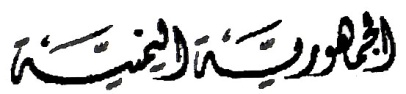 الجمهورية اليمنية